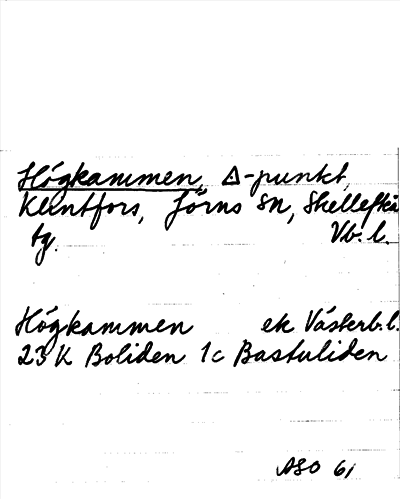 Högkammen, △-punkt,
Klintfors, Jörns sn, Skellefteå
tg. Vb. l.
Högkammen ek Västerb. l.
23 K Boliden 1c Bastuliden
ASO 61